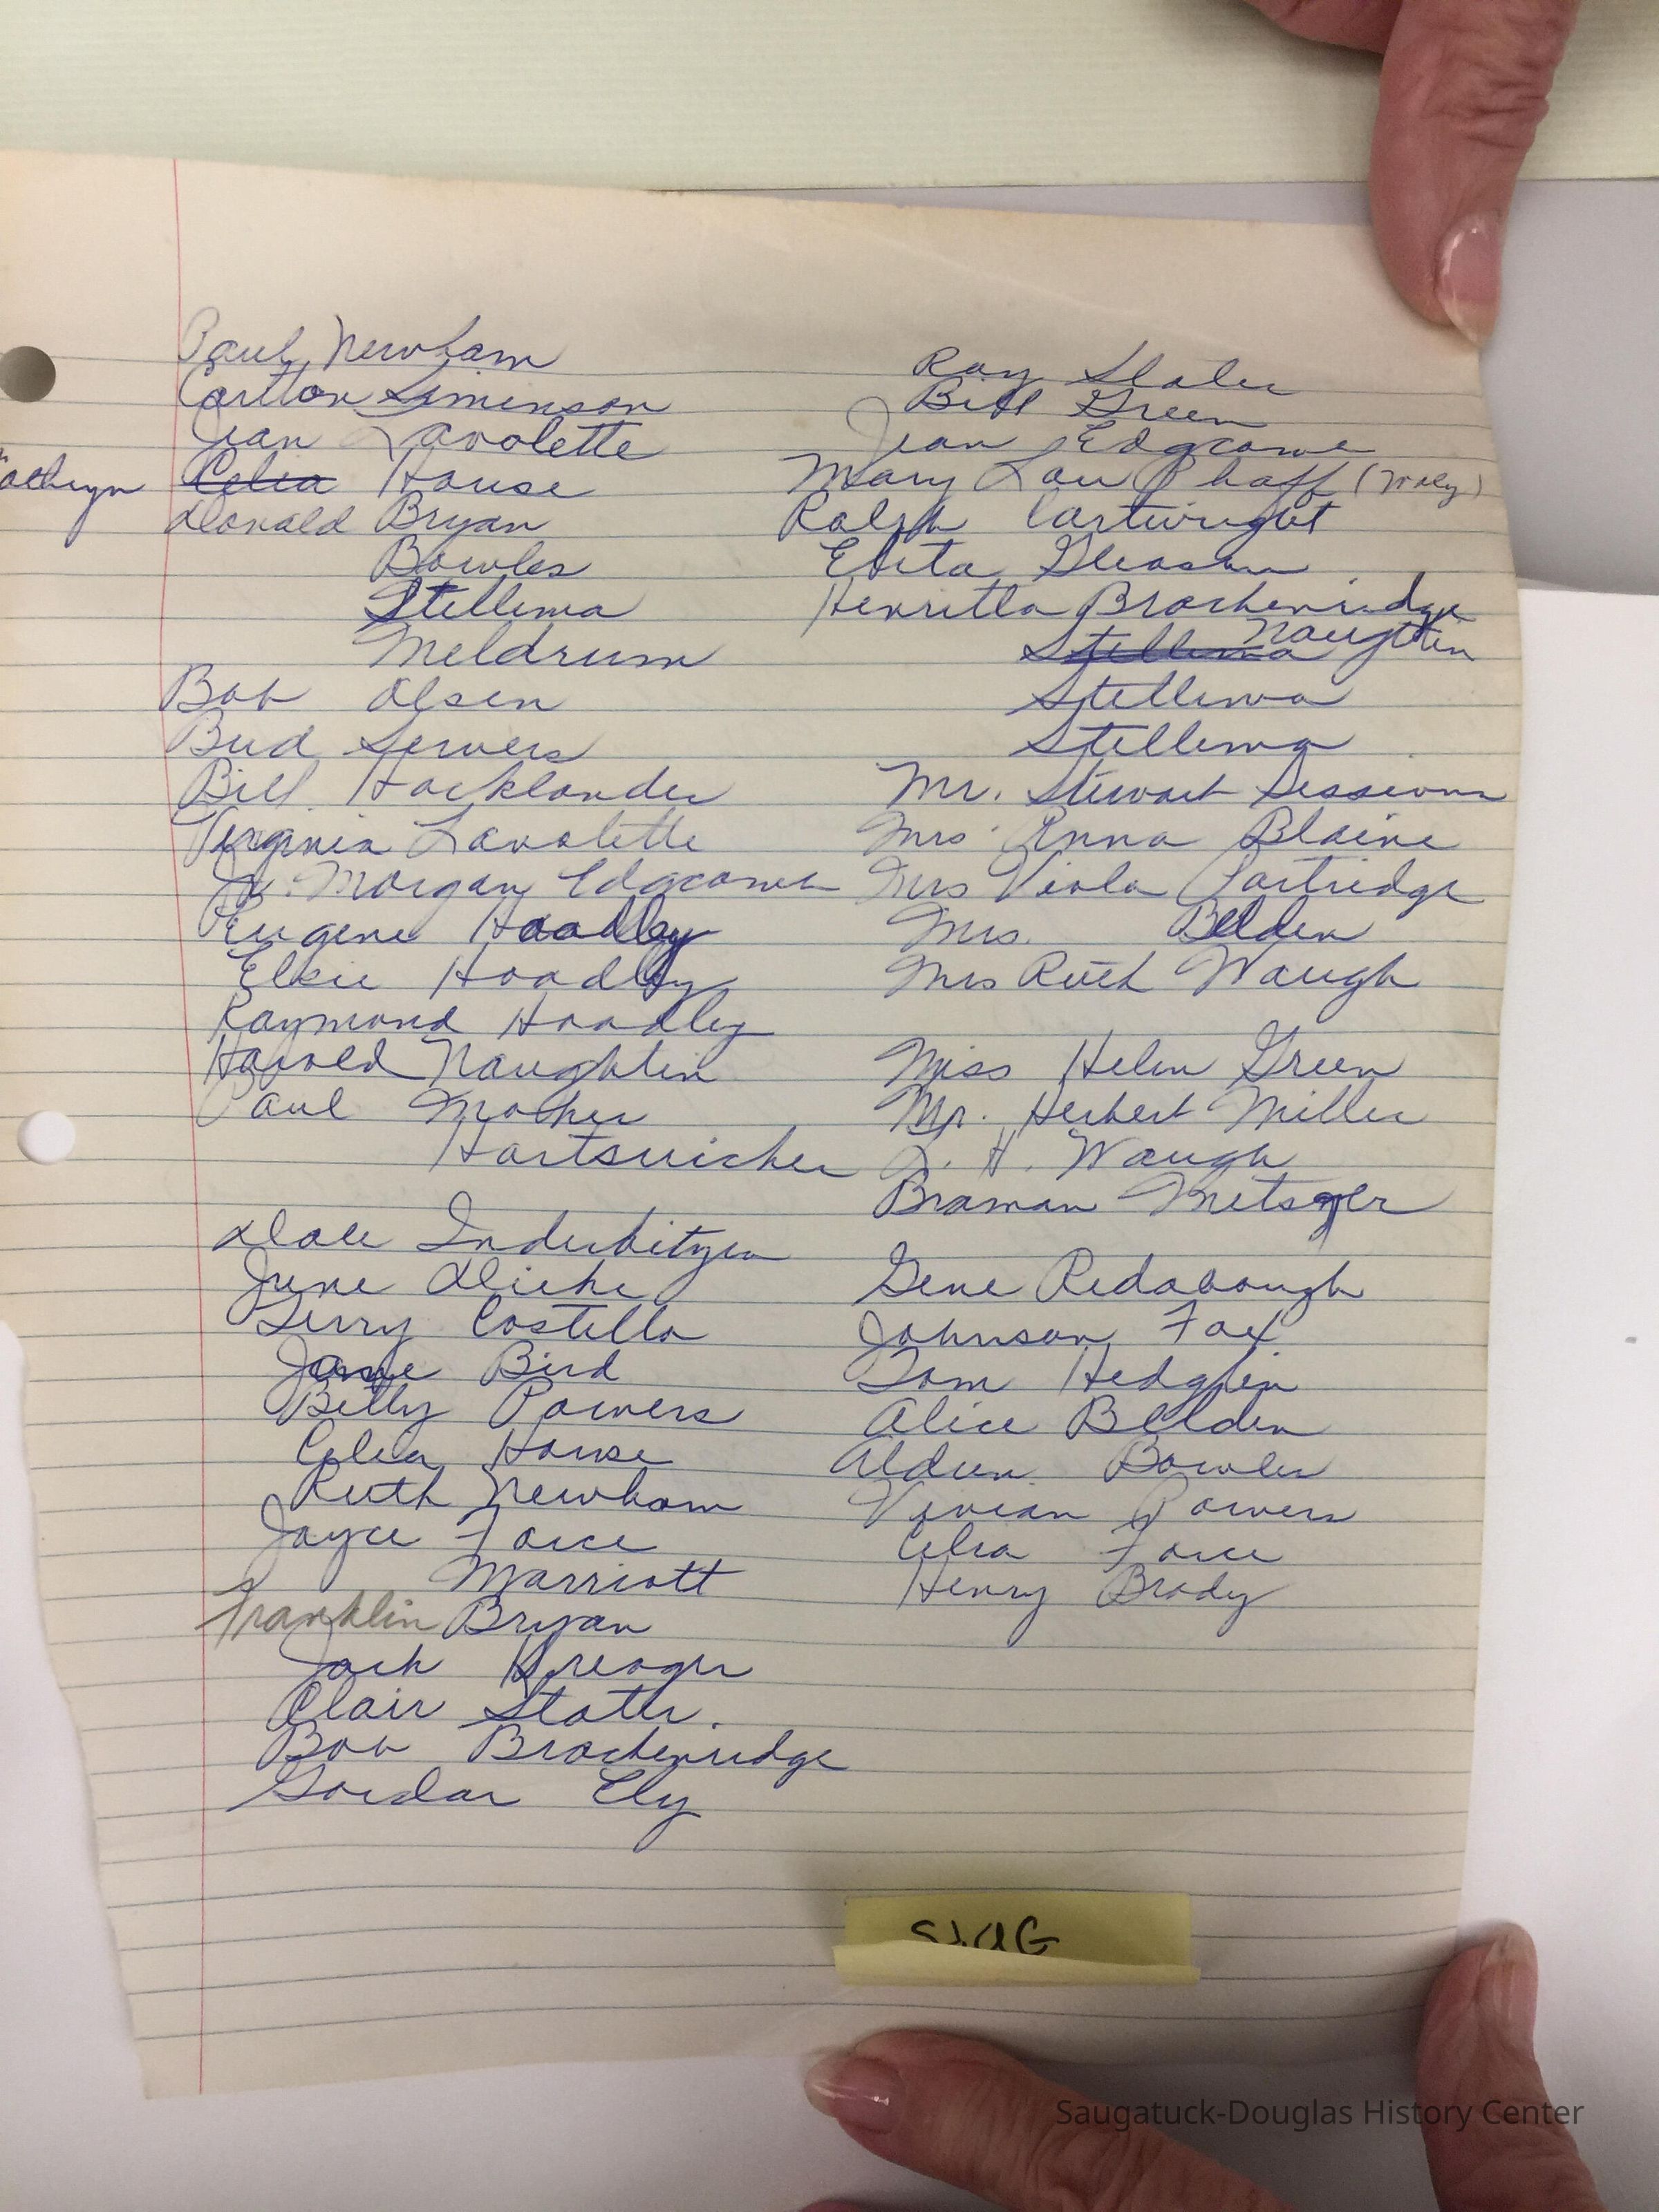 Paul Newham
Carlton Simenson
Jean Lavolette
Celia House
Donald Bryan
Bowles
Stellema
Meldrum
Bob Olsen
Bud Sewers
Bill Hacklander
Virginia Lavolette
Jr. Morgan Edgcomb
Eugene Hoadley
Elkie Hoadley
Raymond Hoadley
Harold Naughtin
Paul Mocher
Dale Inderbitzen
June Dicke
Jerry Costello
Jane Bird
Billy Powers
Celia House
Ruth Newham
Joyce Force
Marriott
Franklin Bryan
Jack Kreager
Clair Slater.
Bob Brackenridge
Gordon Ely
Ray Slater
Bill Green
Jean Edgcomb
Mary Lou Phaff
Ralph Cartwright
Gleason
Henrietta Brackenridge
Naughtin
Stellema
Stellema
Stellema
Mr. Stewart Sessions
Mrs Anna Blaine
Mrs Viola Partridge
Mrs. Belden
Mrs Ruth Waugh
Miss Helen Green
Mr. Herbert Miller
L. H. Waugh
Braman Metsger
Gene Redabaugh
Johnson Fox
Tom Hedglin
Alice Belden
Aldren Bowles
Vivian Powers
Celia Force
Henry Brady
SAUG
Saugatuck-Douglas History Center